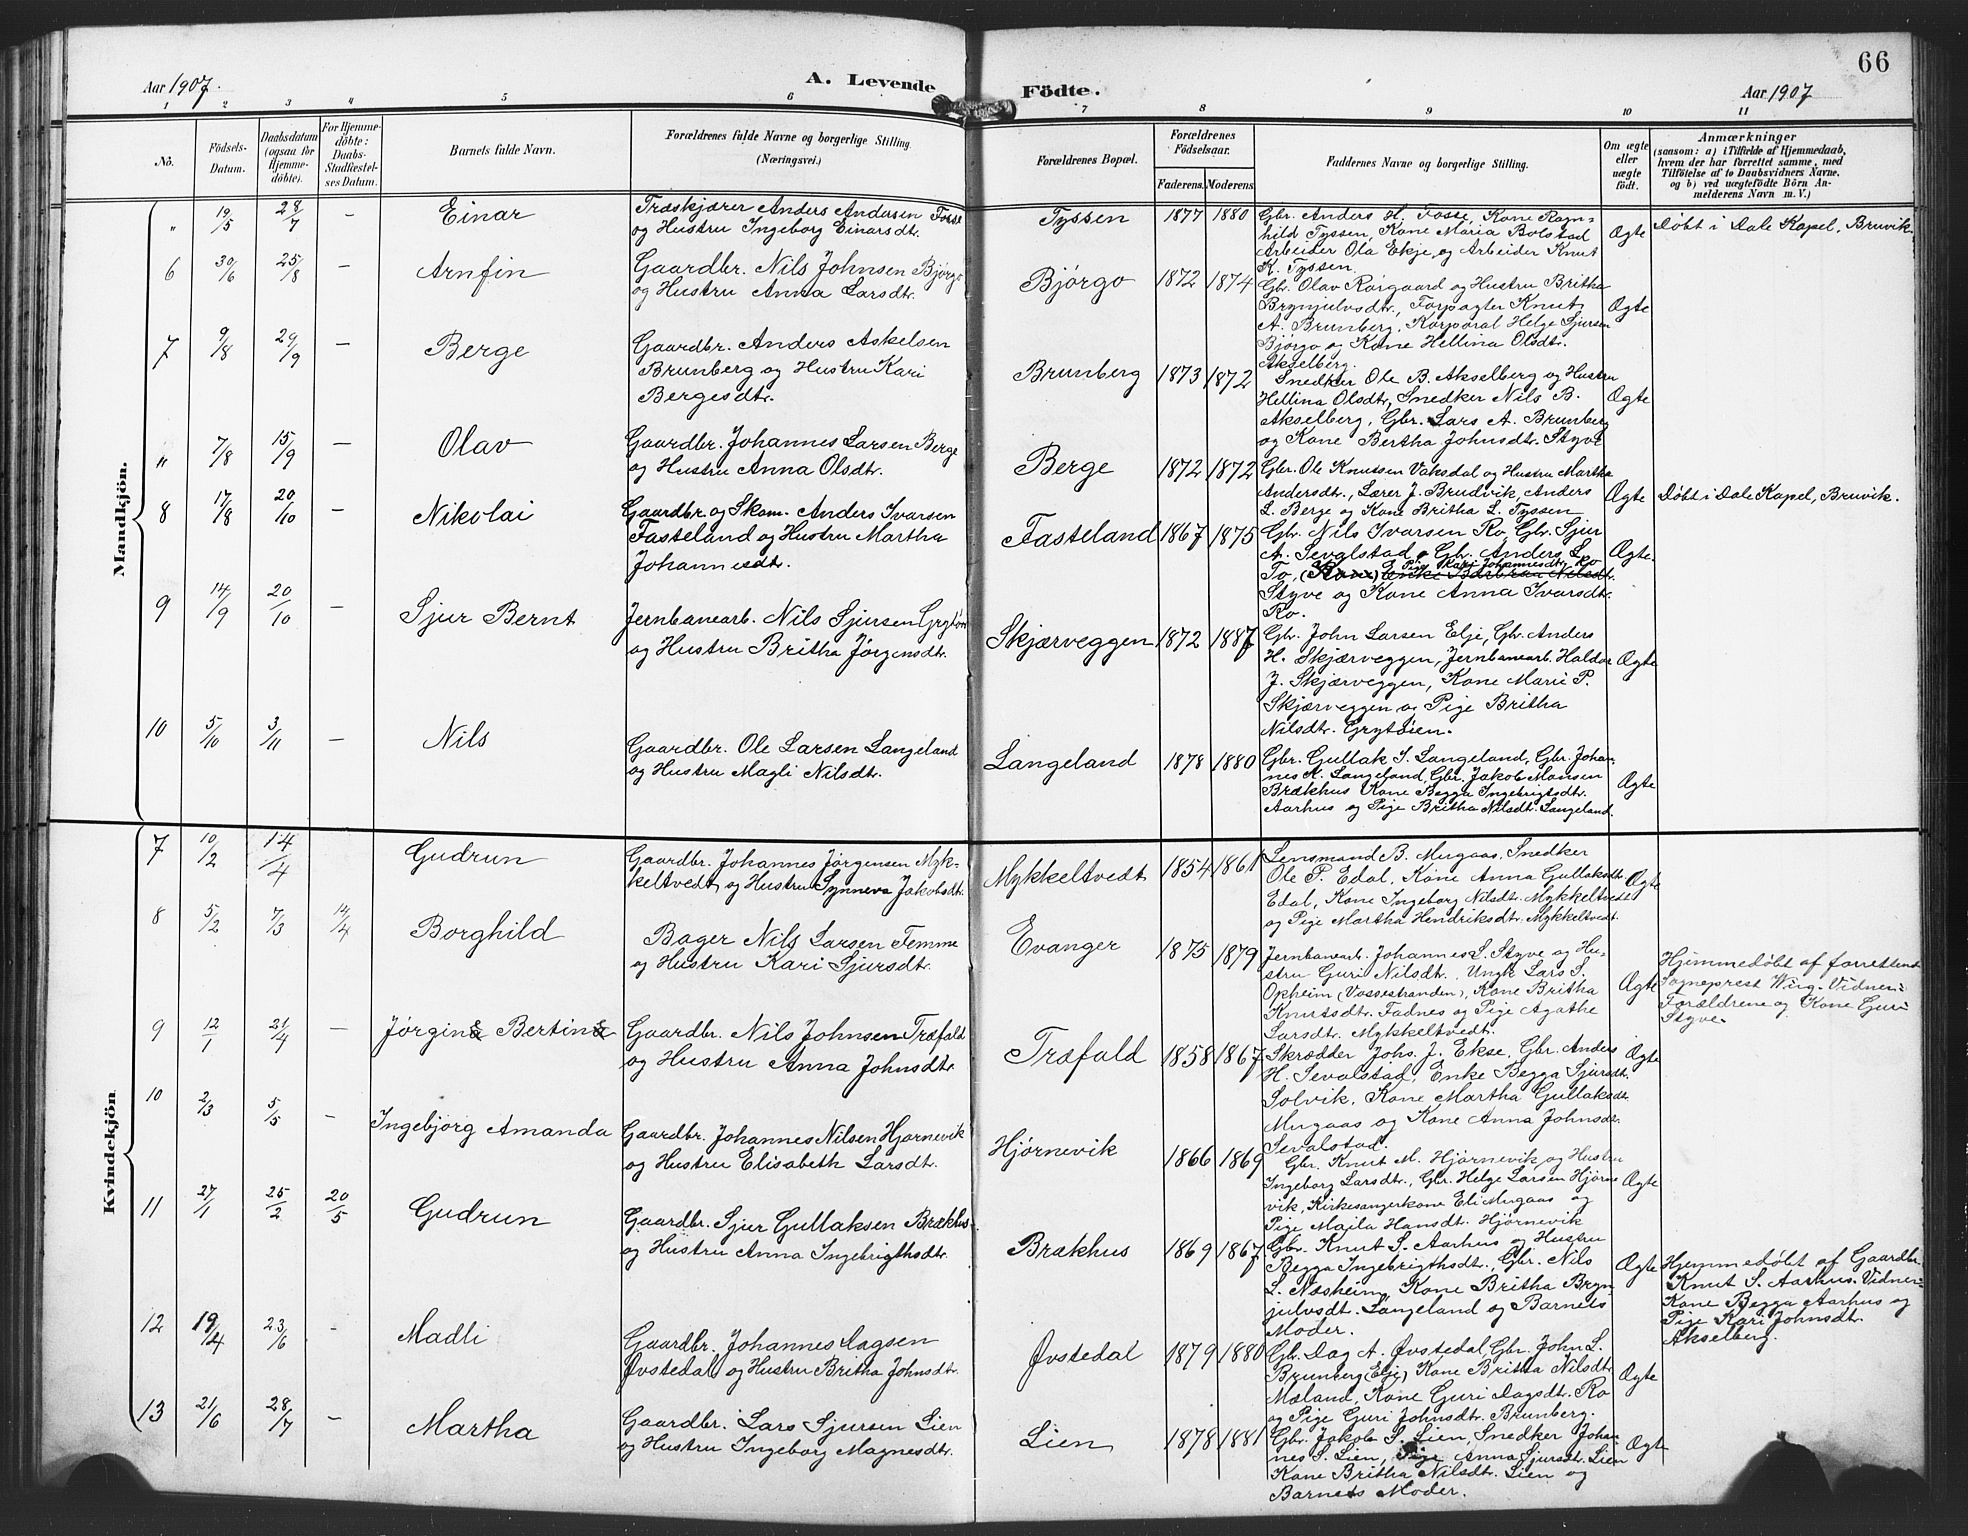 66
Aar 1907.
A. Levende
Födte.
Aar 1907
1 2 3 4 5 6 7 8 9 10 11
No.
Födsels-
Datum.
Daabsdatum
(ogsaa for
Hjemme-
döbte).
For Hjemme-
döbte:
Daabs-
Stadfæstel-
ses Datum.
Barnets fulde Navn.
Forældrenes fulde Navne og borgerlige Stilling.
(Næringsvei.)
Forældrenes Bopæl.
Forældrenes
Födselsaar.
Faderens. Moderens.
Faddernes Navne og borgerlige Stilling.
Om ægte
eller
uægte
födt.
Anmærkninger
(saasom: a) i Tilfælde af Hjemmedaab,
hvem der har forrettet samme, med
Tilföielse af to Daabsvidners Navne,
og b) ved uægtefödte Börn An-
melderens Navn m. V.)
Mandkjön.
" 19/5 28/7 – Einar
Træskjærer Anders Andersen Fosse
og Hustru Ingeborg Einarsdt.
Tyssen 1877 1880
Gbr. Anders H. Fosse, Kone Ragn-
hild Tyssen, Kone Maria Bolstad
Arbeider Ola Ekje, og Arbeider Knut
K. Tyssen.
Ægte
Døbt i Dale Kapel, Bruvik.
6 30/6 25/8 – Arnfin
Gaardbr. Nils Johnsen Bjørgo
og Hustru Anna Larsdt.
Bjørgo 1872 1874
Gbr. Olav Rørgaard og Hustru Britha
Brynjulvsdt., Forpagter Knut
A. Brunberg, Korporal Helge Sjursen
Bjørgo og Kone Hellina Olsdt.
Akselberg.
Ægte
7 9/8 29/9 – Berge
Gaardbr. Anders Askelsen
Brunberg og Hustru Kari
Bergesdt.
Brunberg 1873 1872
Snedker Ole B. Akselberg og Hustru
Hellina Olsdt, Snedker Nils B.
Akselberg, Gbr. Lars A. Brunberg
og Kone Bertha Johnsdt. Styve
Ægte
" 7/8 15/9 – Olav
Gaardbr. Johannes Larsen Berge
og Hustru Anna Olsdt.
Berge 1872 1872
Gbr. Ole Knutsen Viksdal og Hustru Martha
Andersdt., Lærer J. Brudvik, Anders
L. Berge og Kone Britha L. Tyssen
Ægte
Døbt i Dale Kapel, Bruvik.
8 17/8 20/10 – Nikolai
Gaardbr og Skom. Anders Ivarsen
Fasteland og Hustru Martha
Johannesdt.
Fasteland 1867 1875
Gbr. Nils Ivarsen Ro, Gbr. Sjur
A. Sevalstad, Gbr. Anders L.
Pige Kari Johannesdt.
To, (Kone) Enke Barbran Nilsdt.
Styve og Kone Anna Ivarsdt.
Ro.
Ægte
9 14/9 20/10 – Sjur Bernt
Jernbanearb. Nils Sjursen Grytøien
og Hustru Britha Jørgensdt.
Skjærveggen 1872 1887
Gbr. John Larsen Elje, Gbr. Anders
H. Skjærveggen, Jernbanearb. Haldor
J. Skjærveggen, Kone Mari P.
Skjærveggen og Pige Britha
Nilsdt. Grytøien.
Ægte
10 5/10 3/11 – Nils
Gaardbr. Ole Larsen Langeland
og Hustru Magli Nilsdt.
Langeland 1878 1880
Gbr. Gullak S. Langeland, Gbr. Johan-
nes K. Langeland, Gbr. Jakob Monsen
Brækhus Kone Begga Ingebrigtsdt.
Aarhus og Pige Britha Nilsdt. Langeland.
Ægte
Kvindekjön
7 10/2 14/4 Gudrun
Gaardbr. Johannes Jørgensen Myk-
keltvedt og Hustru Synneva Jakobsdt.
Mykkeltvedt 1854 1861
Lensmand B. Mugaas, Snedker
Ole P. Edal, Kone Anna Gullaksdt.
Edal, Kone Ingeborg Nilsdt. Mykkeltvedt
og Pige Martha Hendriksdt. Mykkeltvedt.
Ægte
8 5/2 7/3 14/4 Borghild
Bager Nils Larsen Femme
og Hustru Kari Sjursdt.
Evanger 1875 1879
Jernbanearb. Johannes S. Styve og Hu-
stru Guri Nilsdt. Ungk. Lars S.
Opheim (Vossestranden), Kone Britha
Knutsdt. Fadnes og Pige Agathe
Larsdt. Mykkeltvedt.
Ægte
Hjemmedøbt af forrettende
Sogneprest Wiig. Vidner:
Forældrene og Kone Guri
Styve.
9 12/1 21/4 – Jørgine Bertine
Gaardbr. Nils Johnsen Træfald
og Hustru Anna Johnsdt.
Træfald 1858 1867
Skrædder Johs. J. Ekse, Gbr. Anders
H. Sevalstad, Enke Begga Sjursdt.
Solvik, Kone Martha Gullaksdt.
Mugaas og Kone Anna Johnsdt.
Sevalstad.
Ægte
10 2/3 5/5 – Ingebjørg Amanda
Gaardbr. Johannes Nilsen Hjørnevik
og Hustru Elisabeth Larsdt.
Hjørnevik 1866 1869
Gbr. Knut M. Hjørnevik og Hustru
Ingeborg Larsdt., Gbr. Helge Larsen Hjørne
vik, Kirkesangerkone Eli Mugaas og
Pige Majla Hansdt. Hjørnevik
Ægte
11 27/1 25/2 20/5 Gudrun
Gaardbr. Sjur Gullaksen Brækhus
og Hustru Anna Ingebrigthsdt.
Brækhus 1869 1867
Gbr. Knut S. Aarhus og Hustru
Begga Ingebrigthsdt., Gbr. Nils
L. Næsheim, Kone Britha Bryn-
julvsdt. Langeland og Barnets
Moder.
Ægte
Hjemmedøbt af Gaardbr.
Knut S. Aarhus. Vidner:
Kone Begga Aarhus og
Pige Kari Johnsdt.
Akselberg.
12 19/4 23/6 – Madli
Gaardbr. Johannes Dagsen
Øvstedal og Hustru Britha Johnsdt.
Øvstedal 1879 1880
Gbr. Dag A. Øvstedal, Gbr. John L.
Brunberg (Elje) Kone Britha Nilsdt.
Mæland, Kone Guri Dagsdt. Ro
og Pige Guri Johnsdt. Brunberg.
Ægte
13 21/6 28/7 – Martha
Gaardbr. Lars Sjursen Lien
og Hustru Ingeborg Magnesdt.
Lien 1878 1881
Gbr. Jakob S. Lien, Snedker Johan
nes S. Lien, Pige Anna Sjursdt. Lien
Kone Britha Nilsdt. Lien og
Barnets Moder.
Ægte